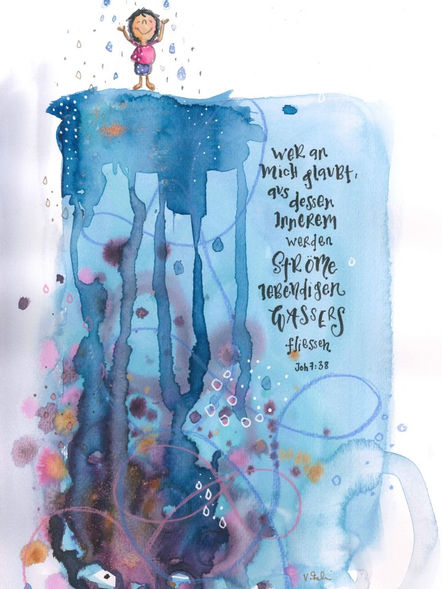 WER AN
MICH glAUBT,
AUS dessen
INNEREM
werden
STRÖMe
lebendigen
WASSERS
fliessen
Joh 7:38